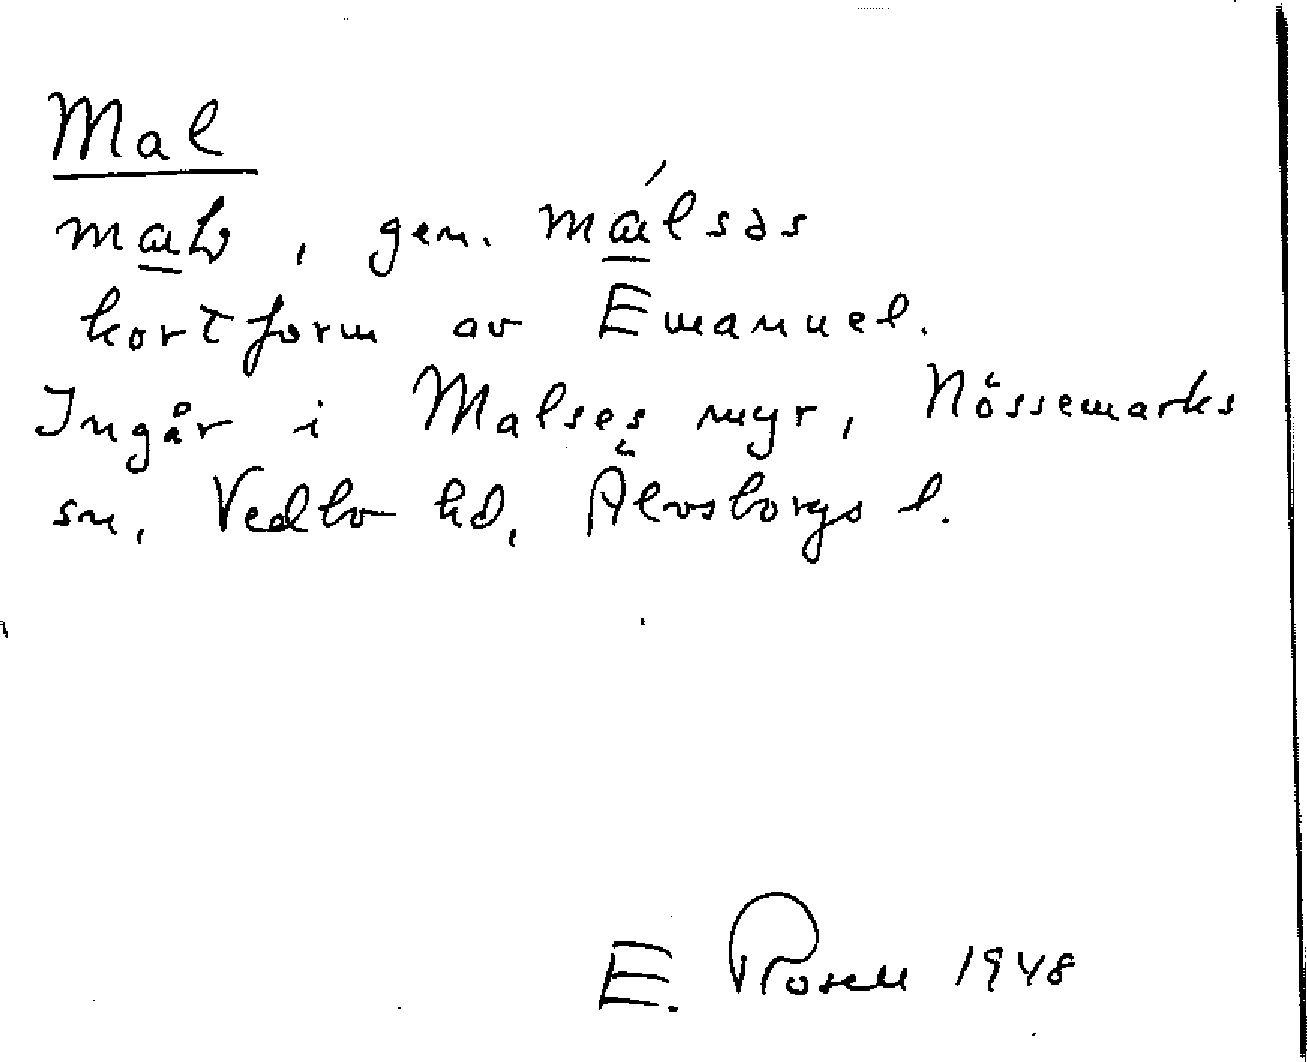 Mal
mal, gen. málsəs
kortform av Emanuel.
Ingår i Malses myr, Nössemarks
sn, Vedbo hd, Älvsborgs l.
E. Rosell 1948